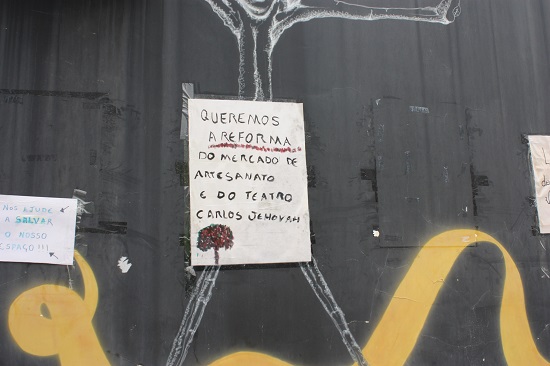 QUEREMOS
A REFORMA
DO MERCADO DE
ARTESANATO
E DO TEATRO
CARLOS JEHOVAH
NOS AJUDE
A SALVAR
O NOSSO
ESPAÇO!!!